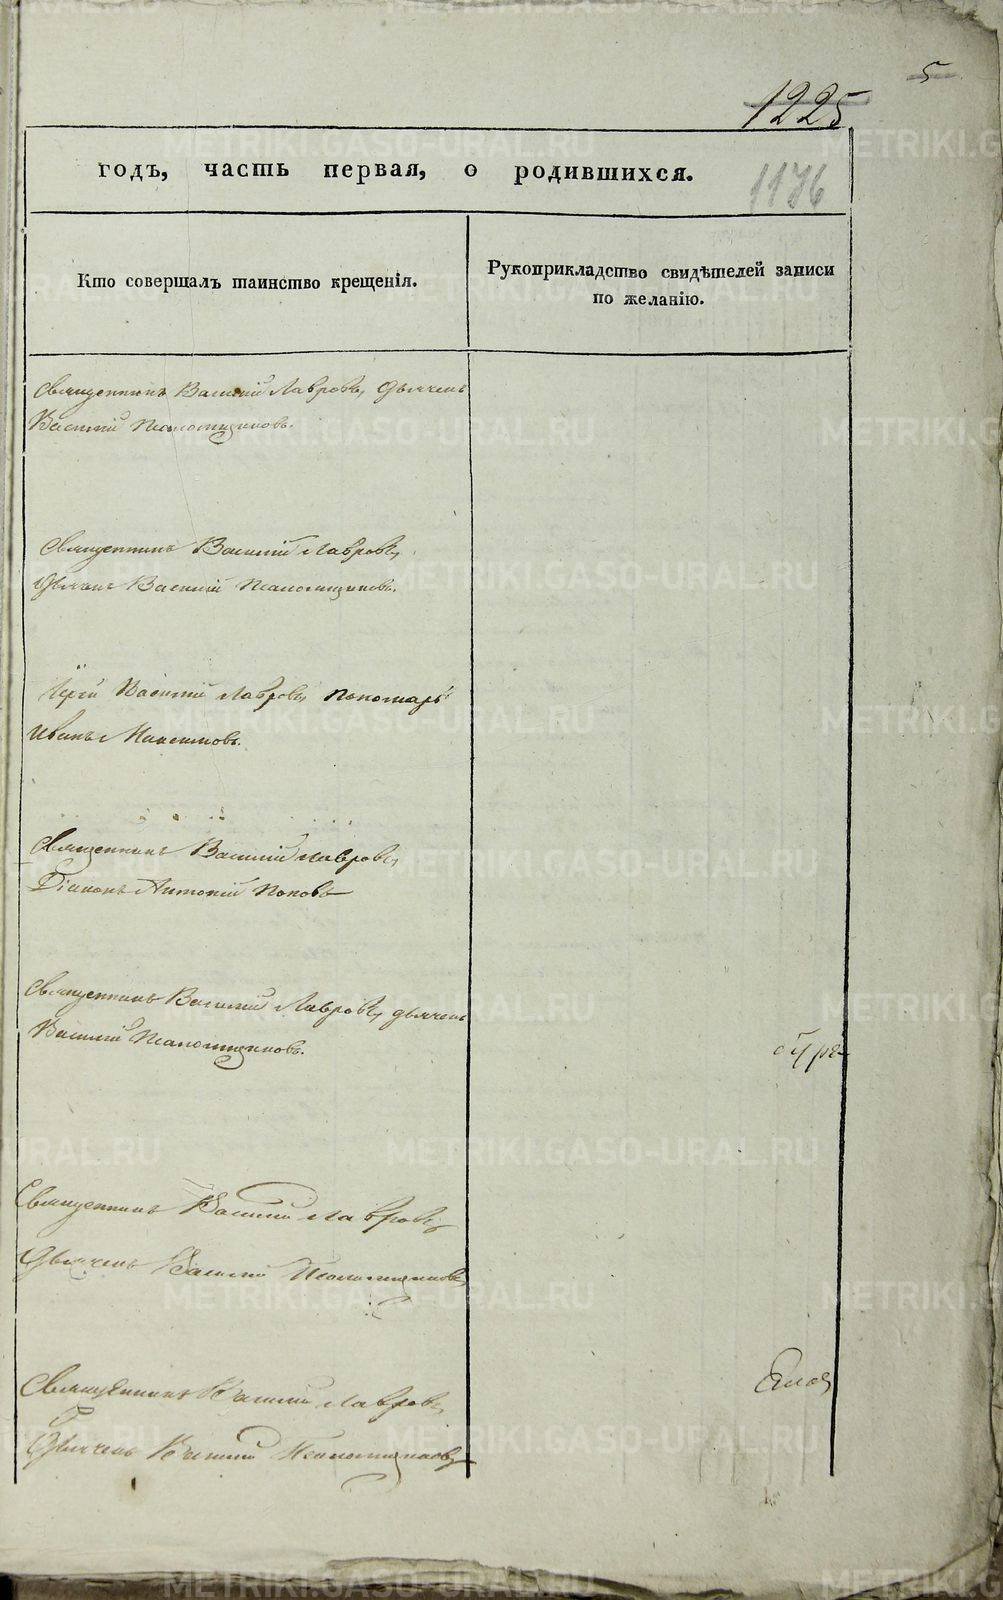 5
1225
годъ, часть первая, о родившихся.
1176
Кто совершалъ таинство крещенія.
Рукоприкладство свидѣтелей записи
по желанію.
Священникъ Василій Лавровъ, дьячекъ
Василій
Священникъ Василій Лавровъ,
Дьячекъ Василій
Іерей Василій Лавровъ, пономарь
Иванъ Максимовъ.
Священникъ Василій Лавровъ,
Діаконъ Антоній Поповъ
Священникъ Василій Лавровъ, дьячекъ
Василій
Священникъ Василій Лавровъ,
Дьячекъ Василій
Священникъ Василій Лавровъ,
Дьячекъ Василій
METRIKI.GASO-URAL.RU